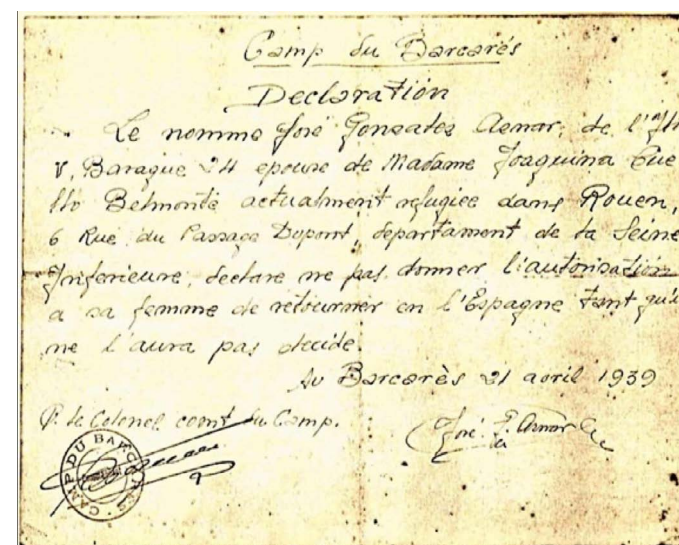 Camp du Barcarés
Declaration
Le nomme José Gonzales Aznar, de l'Ilt
V, Baraque 24 epoux de Madame Joaquina Cue
llo Belmonte actualment refugiee dans Rouen,
6 Rue du Passage Dupont, departament de la Seine
Inferieure, declare ne pas donner l'autorisation
a sa femme de retourner en l'Espagne tant qu'il
ne l'aura pas decide.
Au Barcarès 21 avril 1939
P. le Colonel comt du Camp.
José G. Aznar
CAMP DU BARCARES